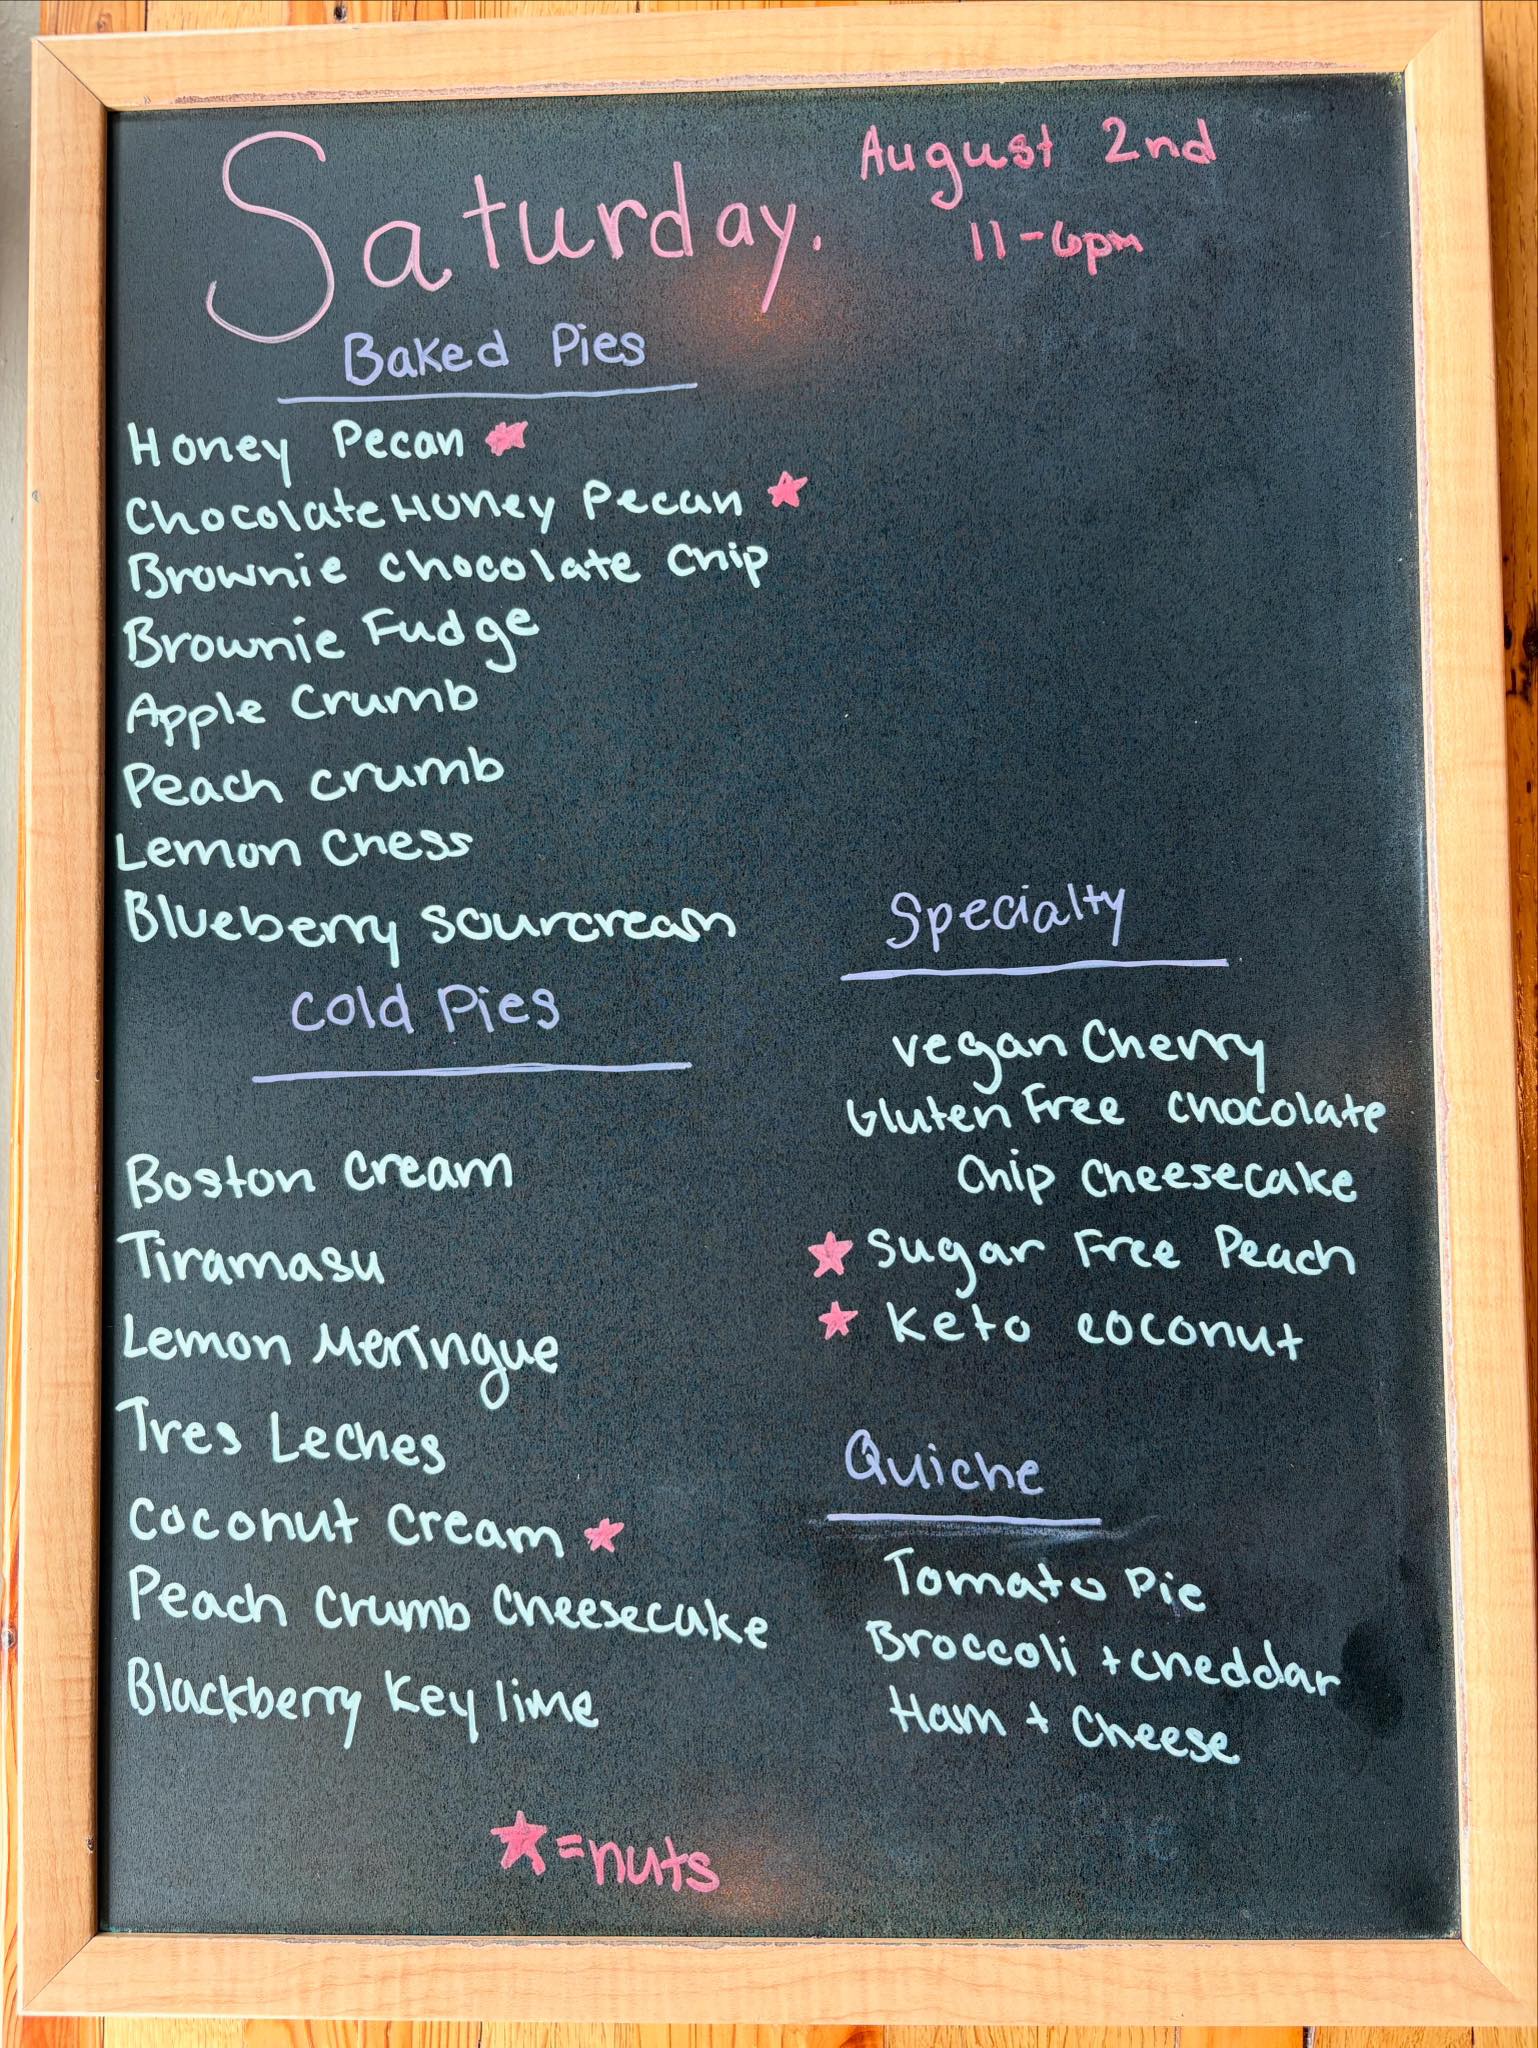 Saturday.
August 2nd
11-6pm
Baked Pies
Honey Pecan ★
Chocolate Honey Pecan ★
Brownie chocolate chip
Brownie Fudge
Apple Crumb
Peach crumb
Lemon Chess
Blueberry sourcream
Cold Pies
Boston Cream
Tiramasu
Lemon Meringue
Tres Leches
Coconut Cream ★
Peach Crumb Cheesecake
Blackberry Key lime
Specialty
vegan Cherry
Gluten Free chocolate
Chip Cheesecake
★ Sugar Free Peach
★ Keto coconut
Quiche
Tomato Pie
Broccoli + cheddar
Ham + Cheese
★=nuts